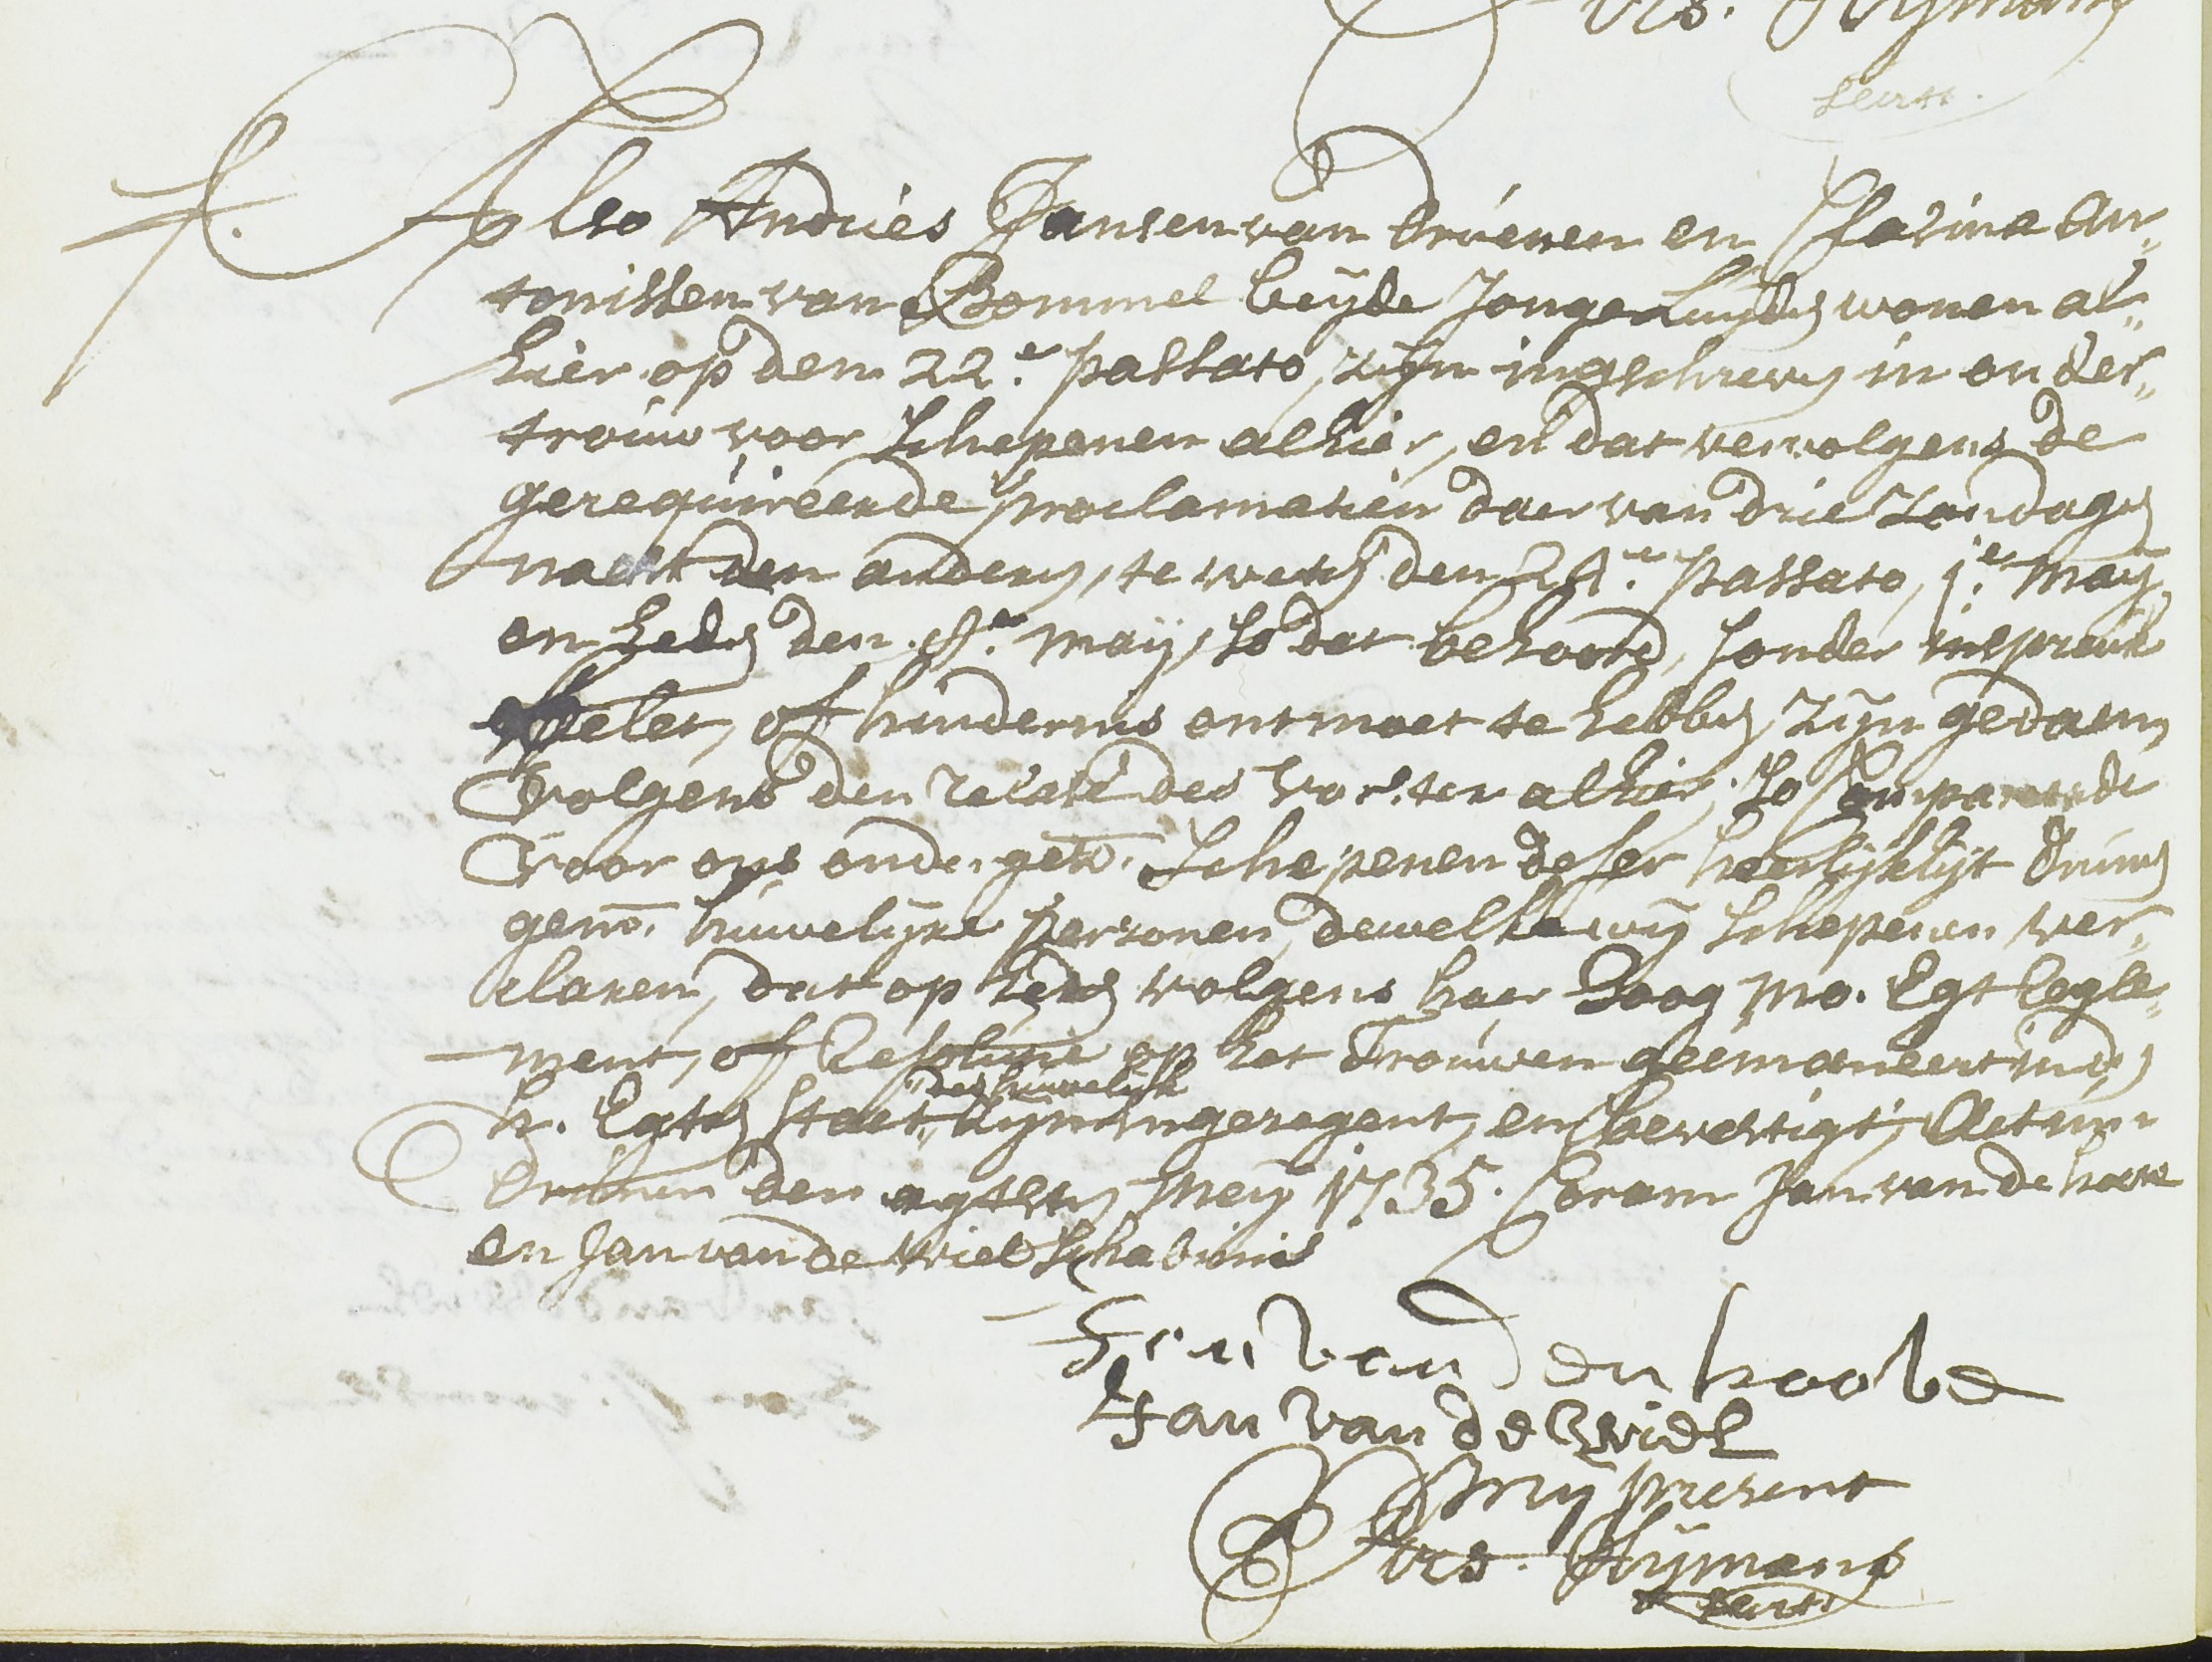 Hijmans
secrts.
Also Andries Jansen van Drúenen en Clasina An„
tonissen van Bommel beÿde Jonge Luijden wonen al„
hier op den 22.e passato, zijn ingeschreven in onder„
troúw voor Schepenen alhier, en dat vervolgens de
gerequireerde proclamatien daer van drie Sondagen
naest den anderen, te weten den 24.e passato, 1.e maÿ,
en heden den 8.e maij, so dat behoord, sonder inspraek
belet, of hindernis ontmoet te hebben, zijn gedaen,
volgens den relate des vorster alhier; So Compareerde
voor ons onderget. Schepenen deser heerlijkhijt Drúnen
genō. húwelijxe personen, dewelke wij Schepenen ver„
claren, dat op heden volgens haer Hoog Mo. Egt Regle„
ment, of Resolutie op het Troúwen geemaneert in de
h. Egten staet, zijn ingezegent, en bevestigt, Actum
des huwelijk
Drúnen den agtsten Meij 1735. Coram Jan van de hoove
en Jan van de Wiel Schabinis
Jan van den hoove
Jan van de Wiel
Mij present
Hijmans
secrts